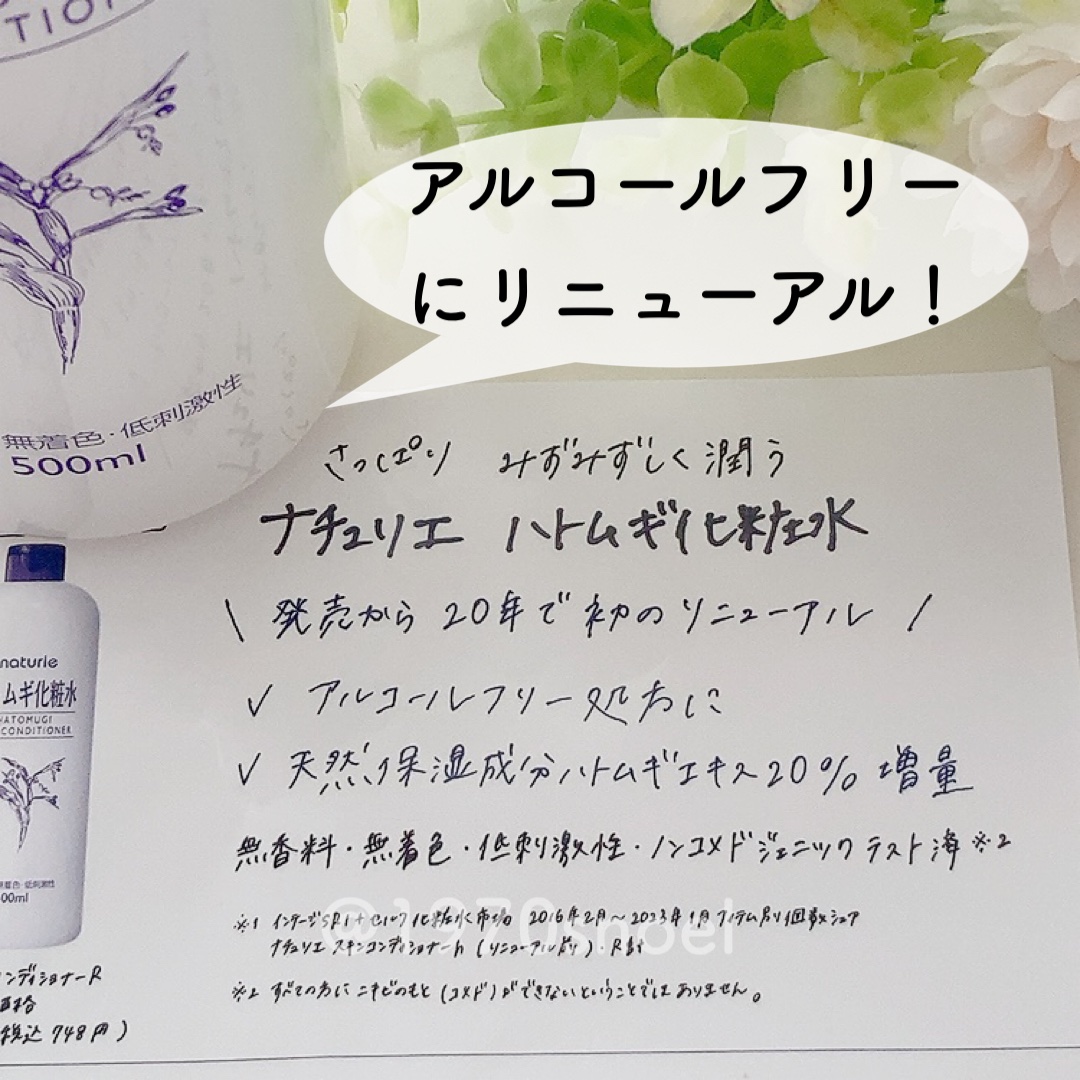 TION
アルコールフリー
にリニューアル!
無着色・低刺激性
500ml
さっぱり みずみずしく潤う
ナチュリエ ハトムギ化粧水
\ 発売から20年で初のリニューアル /
✓ アルコールフリー処方に
✓ 天然保湿成分ハトムギエキス20%増量
無香料・無着色・低刺激性・ノンコメドジェニックテスト済※2
※1 インテージSRI+セルフ化粧水市場 2016年2月〜2023年1月アイテム別個数シェア
ナチュリエ スキンコンディショナーh (リニューアル前)・R計
※2 すべての方にニキビのもと(コメド)ができないということではありません。
@1970snoel
naturie
ムギ化粧水
HATOMUGI
CONDITIONER
無着色・低刺激性
500ml
ンディショナーR
価格
税込748円)